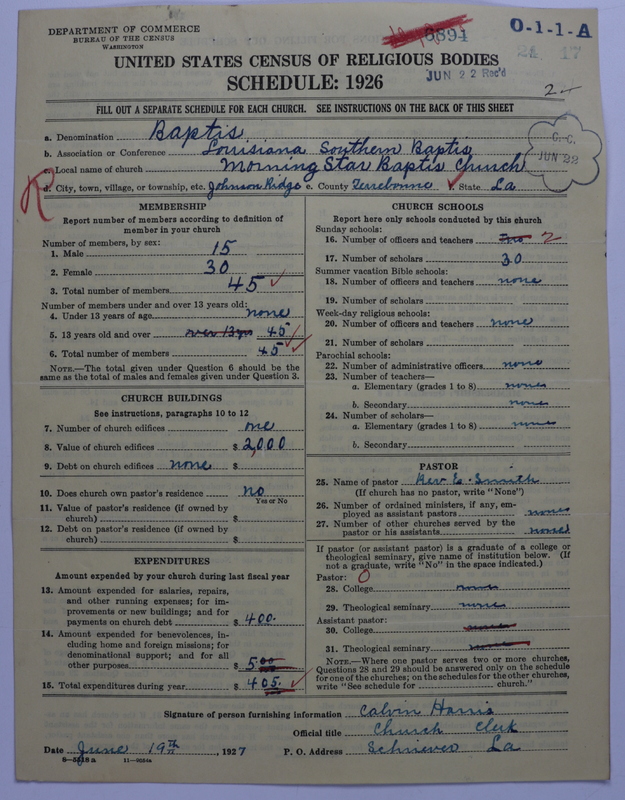 DEPARTMENT OF COMMERCE
BUREAU OF THE CENSUS
WASHINGTON
6894
O-1-1-A
24 17
UNITED STATES CENSUS OF RELIGIOUS BODIES
SCHEDULE: 1926
JUN 22 Rec'd
FILL OUT A SEPARATE SCHEDULE FOR EACH CHURCH. SEE INSTRUCTIONS ON THE BACK OF THIS SHEET
a. Denomination Baptis
b. Association or Conference Louisiana Southern Baptis
c. Local name of church Morning Star Baptis Church
C. C.
JUN 22
R
d. City, town, village, or township, etc. Johnson Ridge e. County Terrebonne f. State La
MEMBERSHIP
Report number of members according to definition of
member in your church
Number of members, by sex:
1. Male 15
2. Female 30
3. Total number of members 45
Number of members under and over 13 years old:
4. Under 13 years of age none
5. 13 years old and over over 13 yrs 45
6. Total number of members 45
NOTE.—The total given under Question 6 should be
same as the total of males and females given under Question 3.
CHURCH BUILDINGS
See instructions, paragraphs 10 to 12
7. Number of church edifices one
8. Value of church edifices $ 2,000
9. Debt on church edifices none $
10. Does church own pastor's residence No
Yes or No
11. Value of pastor's residence (if owned by
church) $
12. Debt on pastor's residence (if owned by
church) $
EXPENDITURES
Amount expended by your church during last fiscal year
13. Amount expended for salaries, repairs,
and other running expenses; for im-
provements or new buildings; and for
payments on church debt $ 400.
14. Amount expended for benevolences, in-
cluding home and foreign missions; for
denominational support; and for all
other purposes $ 5.00
15. Total expenditures during year $ 405.
CHURCH SCHOOLS
Report here only schools conducted by this church
Sunday schools:
16. Number of officers and teachers Two 2
17. Number of scholars 30
Summer vacation Bible schools:
18. Number of officers and teachers none
19. Number of scholars
Week-day religious schools:
20. Number of officers and teachers none
21. Number of scholars
Parochial schools:
22. Number of administrative officers none
23. Number of teachers—
a. Elementary (grades 1 to 8) none
b. Secondary none
24. Number of scholars—
a. Elementary (grades 1 to 8) none
b. Secondary
PASTOR
25. Name of pastor Rev E. Smith
(If church has no pastor, write "None")
26. Number of ordained ministers, if any, em-
ployed as assistant pastors none
27. Number of other churches served by the
pastor or his assistants none
If pastor (or assistant pastor) is a graduate of a college or
theological seminary, give name of institution below. (If
not a graduate, write "No" in the space indicated.)
Pastor: O
28. College none
29. Theological seminary none
Assistant pastor:
30. College none
31. Theological seminary none
NOTE.—Where one pastor serves two or more churches,
Questions 28 and 29 should be answered only on the schedule
for one of the churches; on the schedules for the other churches,
write "See schedule for church."
Signature of person furnishing information Calvin Harris
Official title Church Clerk
Date June 19th, 1927 P. O. Address Schriever La
8—5518 a 11—9034a